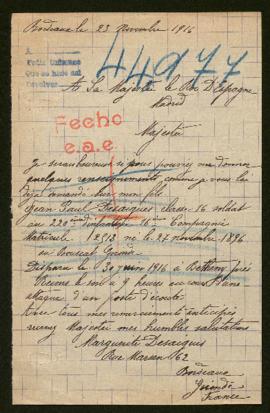 Bordeaux le 23 Novembre 1916
44977
A Sa Majesté le Roi D'Espagne
Madrid
Fecho
e.a.e
Majesté
Je serais heureuse si vous pouviez me donner
quelques renseignements comme je vous l'ai
déjà demandé sur mon fils
Jean Paul Desaigues classe 16 soldat
au 220e d'infanterie 16e Compagnie
Matricule 2513 né le 27 novembre 1896
au Bouscat Gironde
Disparu le 30 1916 a Betheny près
Reims a soir a 9 heures au cours dans
attaque d'un poste d'écoute
Avec tous mes remerciements anticipés
Majesté mes humbles salutations
Marguerite Desaigues
Rue 62
Bordeaux
Gironde
France